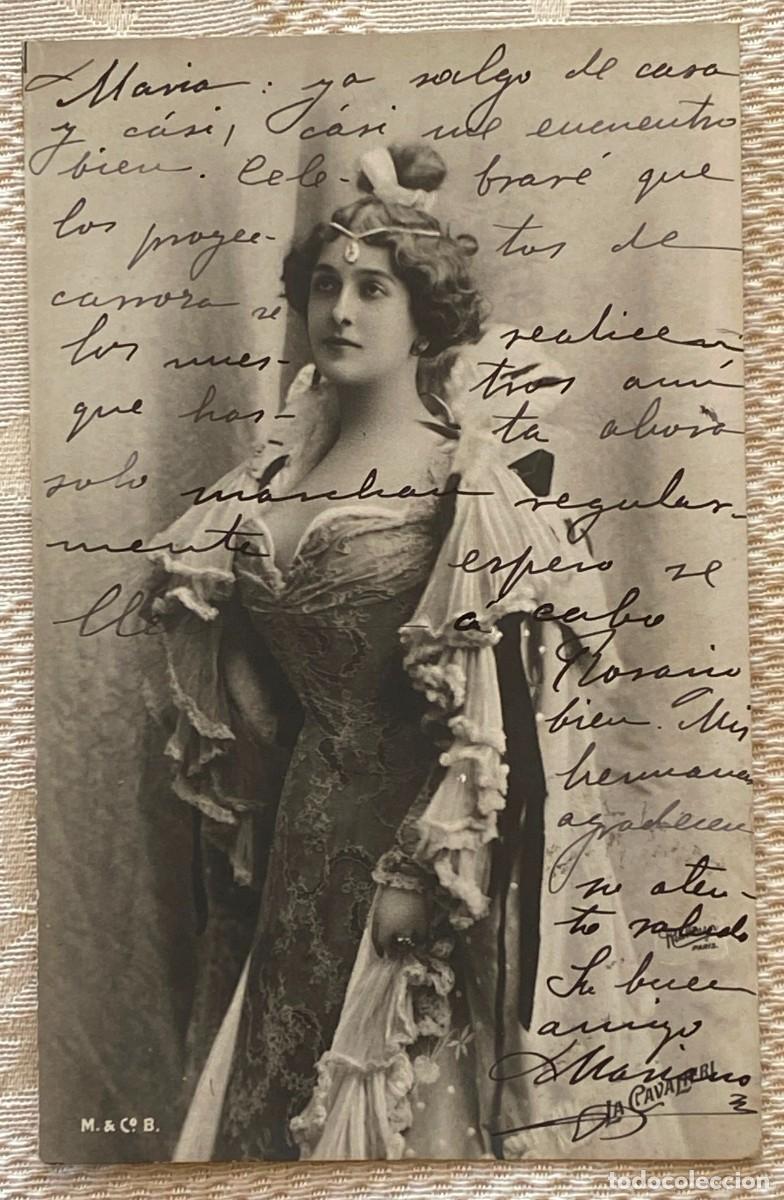 Maria: ya salgo de casa
y cási, cási me encuentro
bien. Cele- braré que
los proyec- tos de
carrora se realicen
los nues- tros aun
que has- ta ahora
solo marchan regular-
mente espero se
lle á cabo
Rosario
bien. Mis
hermanas
agradecen
su aten-
to saludo
Su buen
amigo
Mariano
PARIS.
LA CAVALIERI
M. & Cº B.
todocoleccion